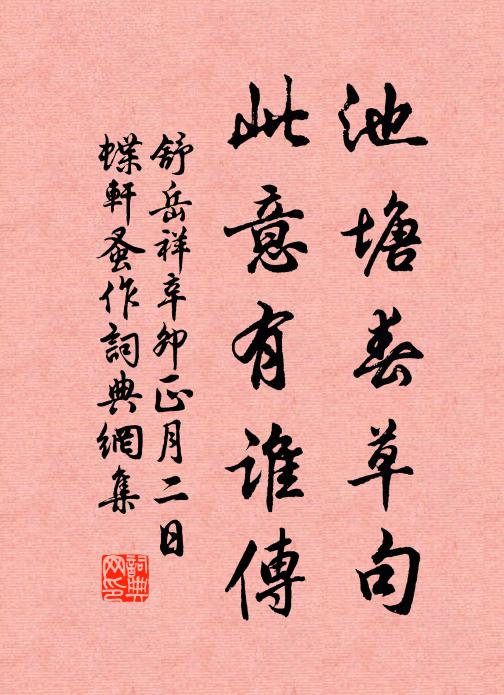 池塘春草句
此意有誰傳
舒岳祥辛卯正月二日
蝶軒蚤作詞典網集
詞典網印